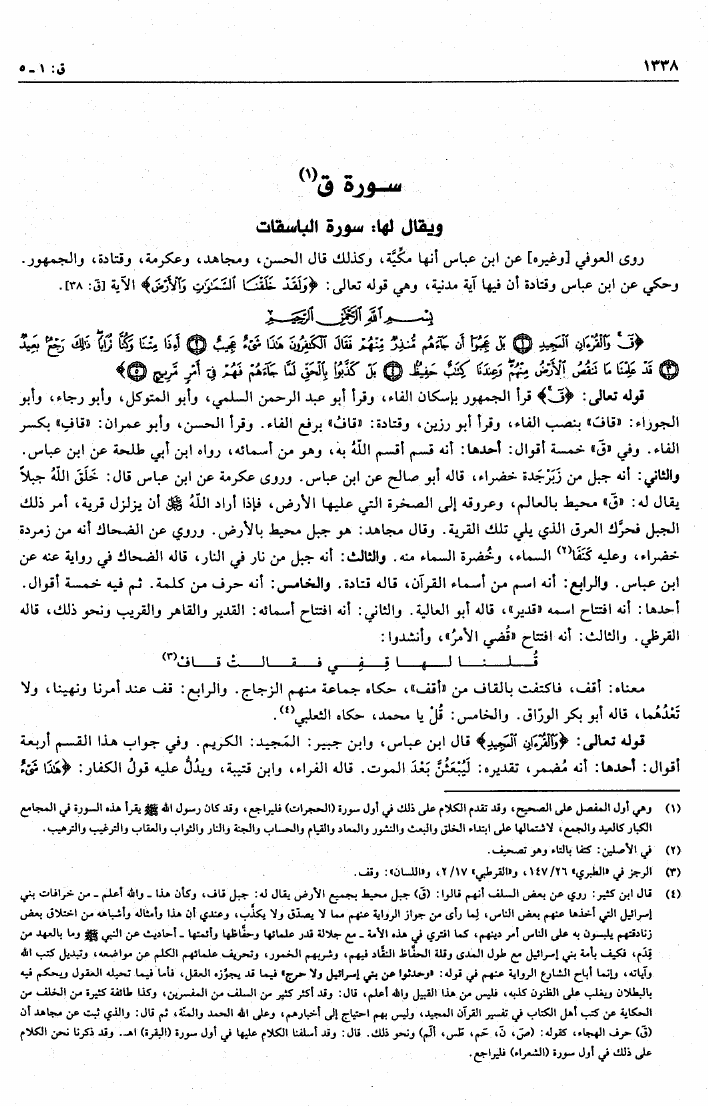 ١٣٣٨
ق: ١ ـ ٥
سورة ق(١)
ويقال لها: سورة الباسقات
روى العوفي [وغيره] عن ابن عباس أنها مكّيَّة، وكذلك قال الحسن، ومجاهد، وعكرمة، وقتادة، والجمهور.
وحكي عن ابن عباس وقتادة أن فيها آية مدنية، وهي قوله تعالى: ﴿وَلَقَدْ خَلَقْنَا السَّمَٰوَٰتِ وَالْأَرْضَ﴾ الآية [ق: ٣٨].
بِسْمِ اللَّهِ الرَّحْمَٰنِ الرَّحِيمِ
﴿قٓ وَالْقُرْءَانِ الْمَجِيدِ ۝١ بَلْ عَجِبُوٓا۟ أَن جَآءَهُم مُّنذِرٌ مِّنْهُمْ فَقَالَ الْكَٰفِرُونَ هَٰذَا شَىْءٌ عَجِيبٌ ۝٢ أَءِذَا مِتْنَا وَكُنَّا تُرَابًا ذَٰلِكَ رَجْعٌۢ بَعِيدٌ
۝٣ قَدْ عَلِمْنَا مَا تَنقُصُ الْأَرْضُ مِنْهُمْ وَعِندَنَا كِتَٰبٌ حَفِيظٌۢ ۝٤ بَلْ كَذَّبُوا۟ بِالْحَقِّ لَمَّا جَآءَهُمْ فَهُمْ فِىٓ أَمْرٍ مَّرِيجٍ ۝٥﴾
قوله تعالى: ﴿قٓ﴾ قرأ الجمهور بإسكان الفاء، وقرأ أبو عبد الرحمن السلمي، وأبو المتوكل، وأبو رجاء، وأبو
الجوزاء: «قافَ» بنصب الفاء، وقرأ أبو رزين، وقتادة: «قافُ» برفع الفاء. وقرأ الحسن، وأبو عمران: «قافِ» بكسر
الفاء. وفي «ق» خمسة أقوال: أحدها: أنه قسم أقسم اللَّهُ به، وهو من أسمائه، رواه ابن أبي طلحة عن ابن عباس.
والثاني: أنه جبل من زَبَرْجَدة خضراء، قاله أبو صالح عن ابن عباس. وروى عكرمة عن ابن عباس قال: خَلَقَ اللَّهُ جبلاً
يقال له: «ق» محيط بالعالم، وعروقه إلى الصخرة التي عليها الأرض، فإذا أراد اللَّهُ ﷻ أن يزلزل قرية، أمر ذلك
الجبل فحرَّك العرق الذي يلي تلك القرية. وقال مجاهد: هو جبل محيط بالأرض. وروي عن الضحاك أنه من زمردة
خضراء، وعليه كَنَفَا(٢) السماء، وخُضرة السماء منه. والثالث: أنه جبل من نار في النار، قاله الضحاك في رواية عنه عن
ابن عباس. والرابع: أنه اسم من أسماء القرآن، قاله قتادة. والخامس: أنه حرف من كلمة. ثم فيه خمسة أقوال.
أحدها: أنه افتتاح اسمه «قدير»، قاله أبو العالية. والثاني: أنه افتتاح أسمائه: القدير والقاهر والقريب ونحو ذلك، قاله
القرظي. والثالث: أنه افتتاح «قُضي الأمرُ»، وأنشدوا:
قُـلـنـا لـهـا قِـفِـي فـقـالـتْ قـاف(٣)
معناه: أقف، فاكتفت بالقاف من «أقف»، حكاه جماعة منهم الزجاج. والرابع: قف عند أمرنا ونهينا، ولا
تَعْدُهُما، قاله أبو بكر الورّاق. والخامس: قُلْ يا محمد، حكاه الثعلبي(٤).
قوله تعالى: ﴿وَالْقُرْءَانِ الْمَجِيدِ﴾ قال ابن عباس، وابن جبير: المَجيد: الكريم. وفي جواب هذا القسم أربعة
أقوال: أحدها: أنه مُضمر، تقديره: لَيُبْعَثُنَّ بَعْدَ الموت. قاله الفراء، وابن قتيبة، ويدُلُّ عليه قولُ الكفار: ﴿هَٰذَا شَىْءٌ
(١) وهي أول المفصل على الصحيح، وقد تقدم الكلام على ذلك في أول سورة (الحجرات) فليراجع، وقد كان رسول الله ﷺ يقرأ هذه السورة في المجامع
الكبار كالعيد والجمع، لاشتمالها على ابتداء الخلق والبعث والنشور والمعاد والقيام والحساب والجنة والنار والثواب والعقاب والترغيب والترهيب.
(٢) في الأصلين: كتفا بالتاء وهو تصحيف.
(٣) الرجز في «الطبري» ١٤٧/٢٦، و«القرطبي» ٢/١٧، و«اللسان»: وقف.
(٤) قال ابن كثير: روي عن بعض السلف أنهم قالوا: (ق) جبل محيط بجميع الأرض يقال له: جبل قاف، وكأن هذا ـ والله أعلم ـ من خرافات بني
إسرائيل التي أخذها عنهم بعض الناس، لِما رأى من جواز الرواية عنهم مما لا يصدّق ولا يكذّب، وعندي أن هذا وأمثاله وأشباهه من اختلاق بعض
زنادقتهم يلبسون به على الناس أمر دينهم، كما افتري في هذه الأمة ـ مع جلالة قدر علمائها وحفَّاظها وأئمتها ـ أحاديث عن النبي ﷺ وما بالعهد من
قِدَم، فكيف بأمة بني إسرائيل مع طول المدى وقلة الحفَّاظ النقَّاد فيهم، وشربهم الخمور، وتحريف علمائهم الكلم عن مواضعه، وتبديل كتب الله
وآياته، وإنما أباح الشارع الرواية عنهم في قوله: «وحدثوا عن بني إسرائيل ولا حرج» فيما قد يجوّزه العقل، فأما فيما تحيله العقول ويحكم فيه
بالبطلان ويغلب على الظنون كذبه، فليس من هذا القبيل والله أعلم، قال: وقد أكثر كثير من السلف من المفسرين، وكذا طائفة كثيرة من الخلف من
الحكاية عن كتب أهل الكتاب في تفسير القرآن المجيد، وليس بهم احتياج إلى أخبارهم، وعلى الله الحمد والمنّة، ثم قال: والذي ثبت عن مجاهد أن
(ق) حرف الهجاء، كقوله: (صٓ، نٓ، حٓم، طٓس، آلٓم) ونحو ذلك. قال: وقد أسلفنا الكلام عليها في أول سورة (البقرة) اهـ. وقد ذكرنا نحن الكلام
على ذلك في أول سورة (الشعراء) فليراجع.